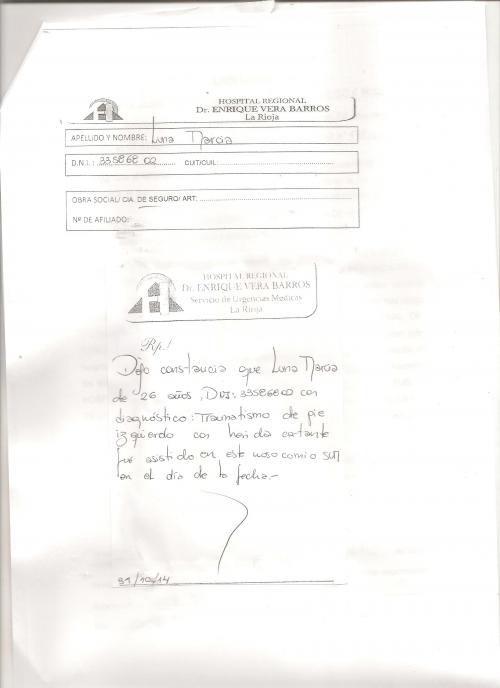 HOSPITAL REGIONAL
Dr. ENRIQUE VERA BARROS
La Rioja
APELLIDO Y NOMBRE: Luna Marcia
D.N.I.: 33586802 CUIT/CUIL:
OBRA SOCIAL/ CIA. DE SEGURO/ ART:
Nº DE AFILIADO:
HOSPITAL REGIONAL
Dr. ENRIQUE VERA BARROS
Servicio de Urgencias Medicas
La Rioja
Rp./
Dejo constancia que Luna Marcia
de 26 años, DNI: 33586802 con
diagnóstico: Traumatismo de pie
izquierdo con herida cortante
fue asistido en este nosocomio
en el día de la fecha.-
31/10/14